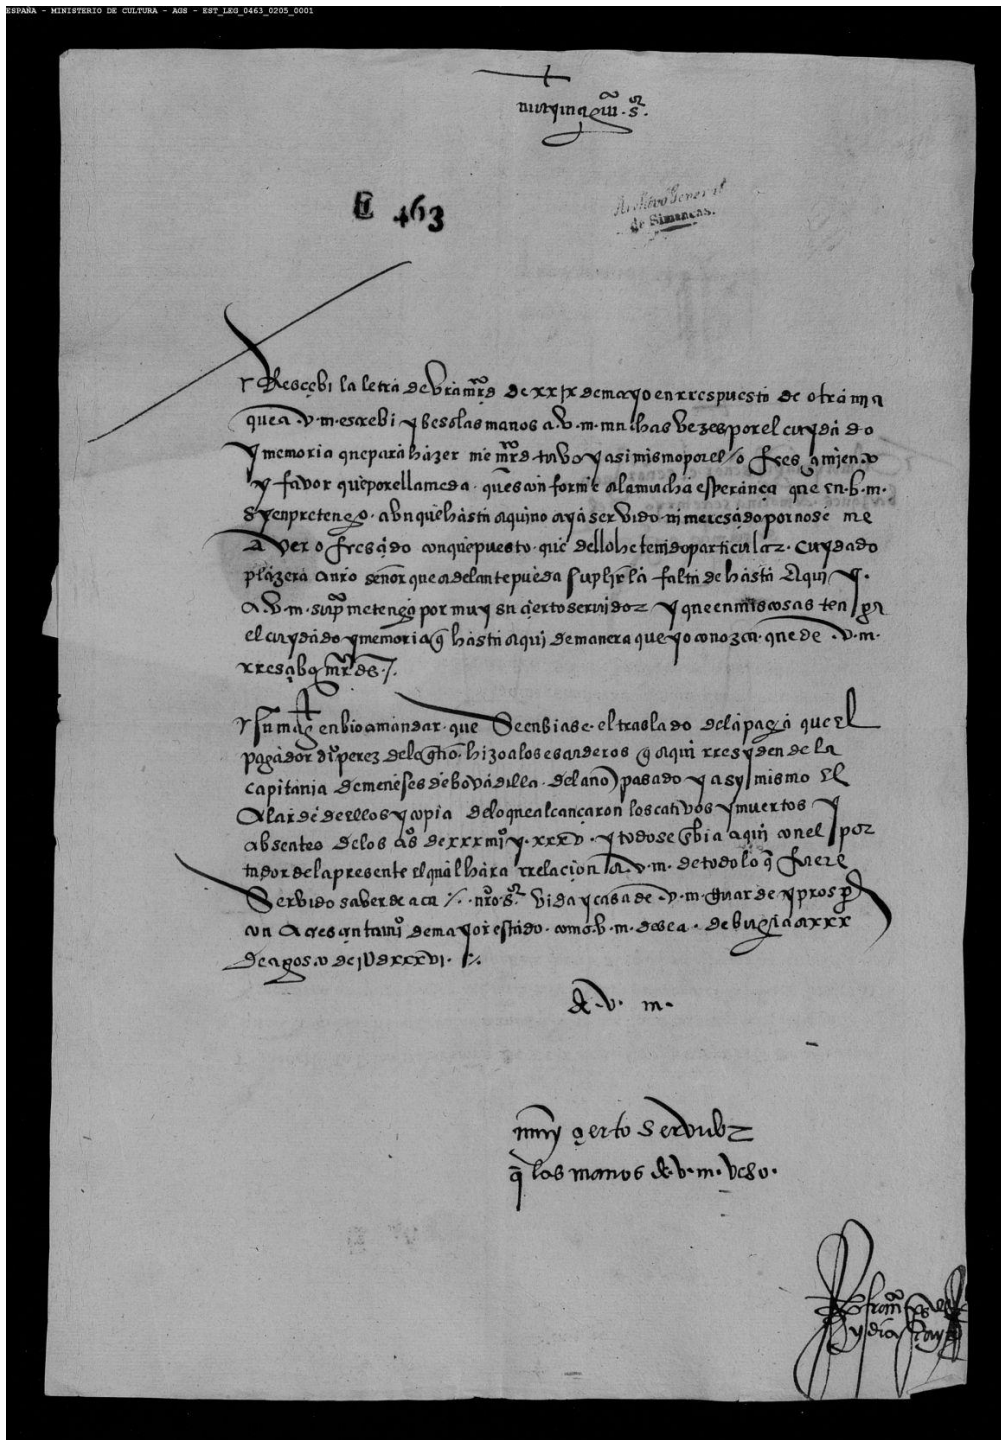 ESPAÑA - MINISTERIO DE CULTURA - AGS - EST_LEG_0463_0205_0001
muy magco. sr.
E 463
Archivo General
de Simancas.
Resçebi la letra de vra mrd de xxix de mayo en rrespuesta de otra mia
que a .v.m. escrebi y beso las manos a .v.m. muchas vezes por el cuydado
y memoria que para hazer me mrd tuvo y asi mismo por el ofresçamiento
y favor que por ella me da. ques conforme a la mucha esperança que en .v.m.
syenpre tengo. avnque hasta aqui no aya servido ni meresçido por no se me
aver ofresçido en que puesto que dello he tenido particular cuydado
plazera a nro señor que adelante pueda suplir la falta de hasta aqui y.
a .v.m. supco me tenga por muy su çierto servidor y que en mis cosas tenga
el cuydado y memoria q hasta aqui de manera que yo conozca que de .v.m.
rresçibo mrdes./.
su magt enbio a mandar que se enbiase el traslado de la paga que el
pagador perez hizo a los escuderos q aqui rresyden de la
capitania de meneses de bovadilla del año pasado y asy mismo el
alarde de ellos y copia de lo que alcançaron los cativos y muertos y
absentes de los as. de xxxiiiiº y xxxv. y todo se enbia aqui con el por
tador de la presente el qual hara rrelaçion a .v.m. de todo lo q fuere
servido saber de aca ./. nro sr vida y casa de .v.m. guarde y prospere
con acresçentamio de mayor estado como .v.m. desea. de bugia a xxx
de agosto de jUdxxxvi ./.
de .v. m.
muy çierto servidor
q las manos de .v.m. beso.